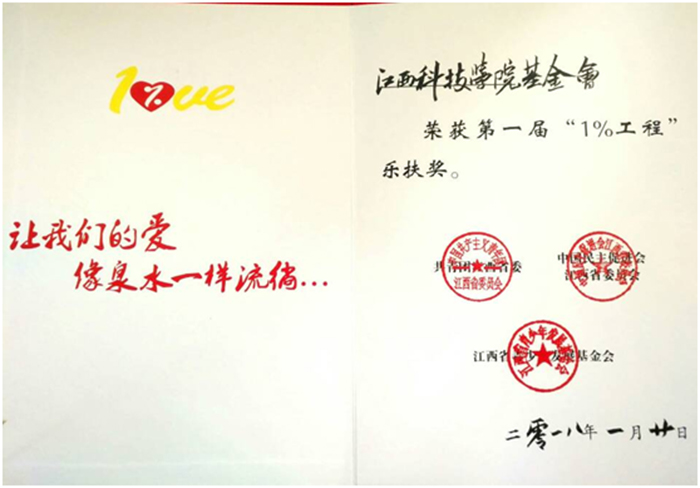 1%ve
让我们的爱
像泉水一样流淌...
江西科技学院基金會
荣获第一届“1%工程”
乐扶奖。
共青团江西省委
中国民主促进会
江西省委员会
江西省青少年发展基金会
二零一八年一月廿日